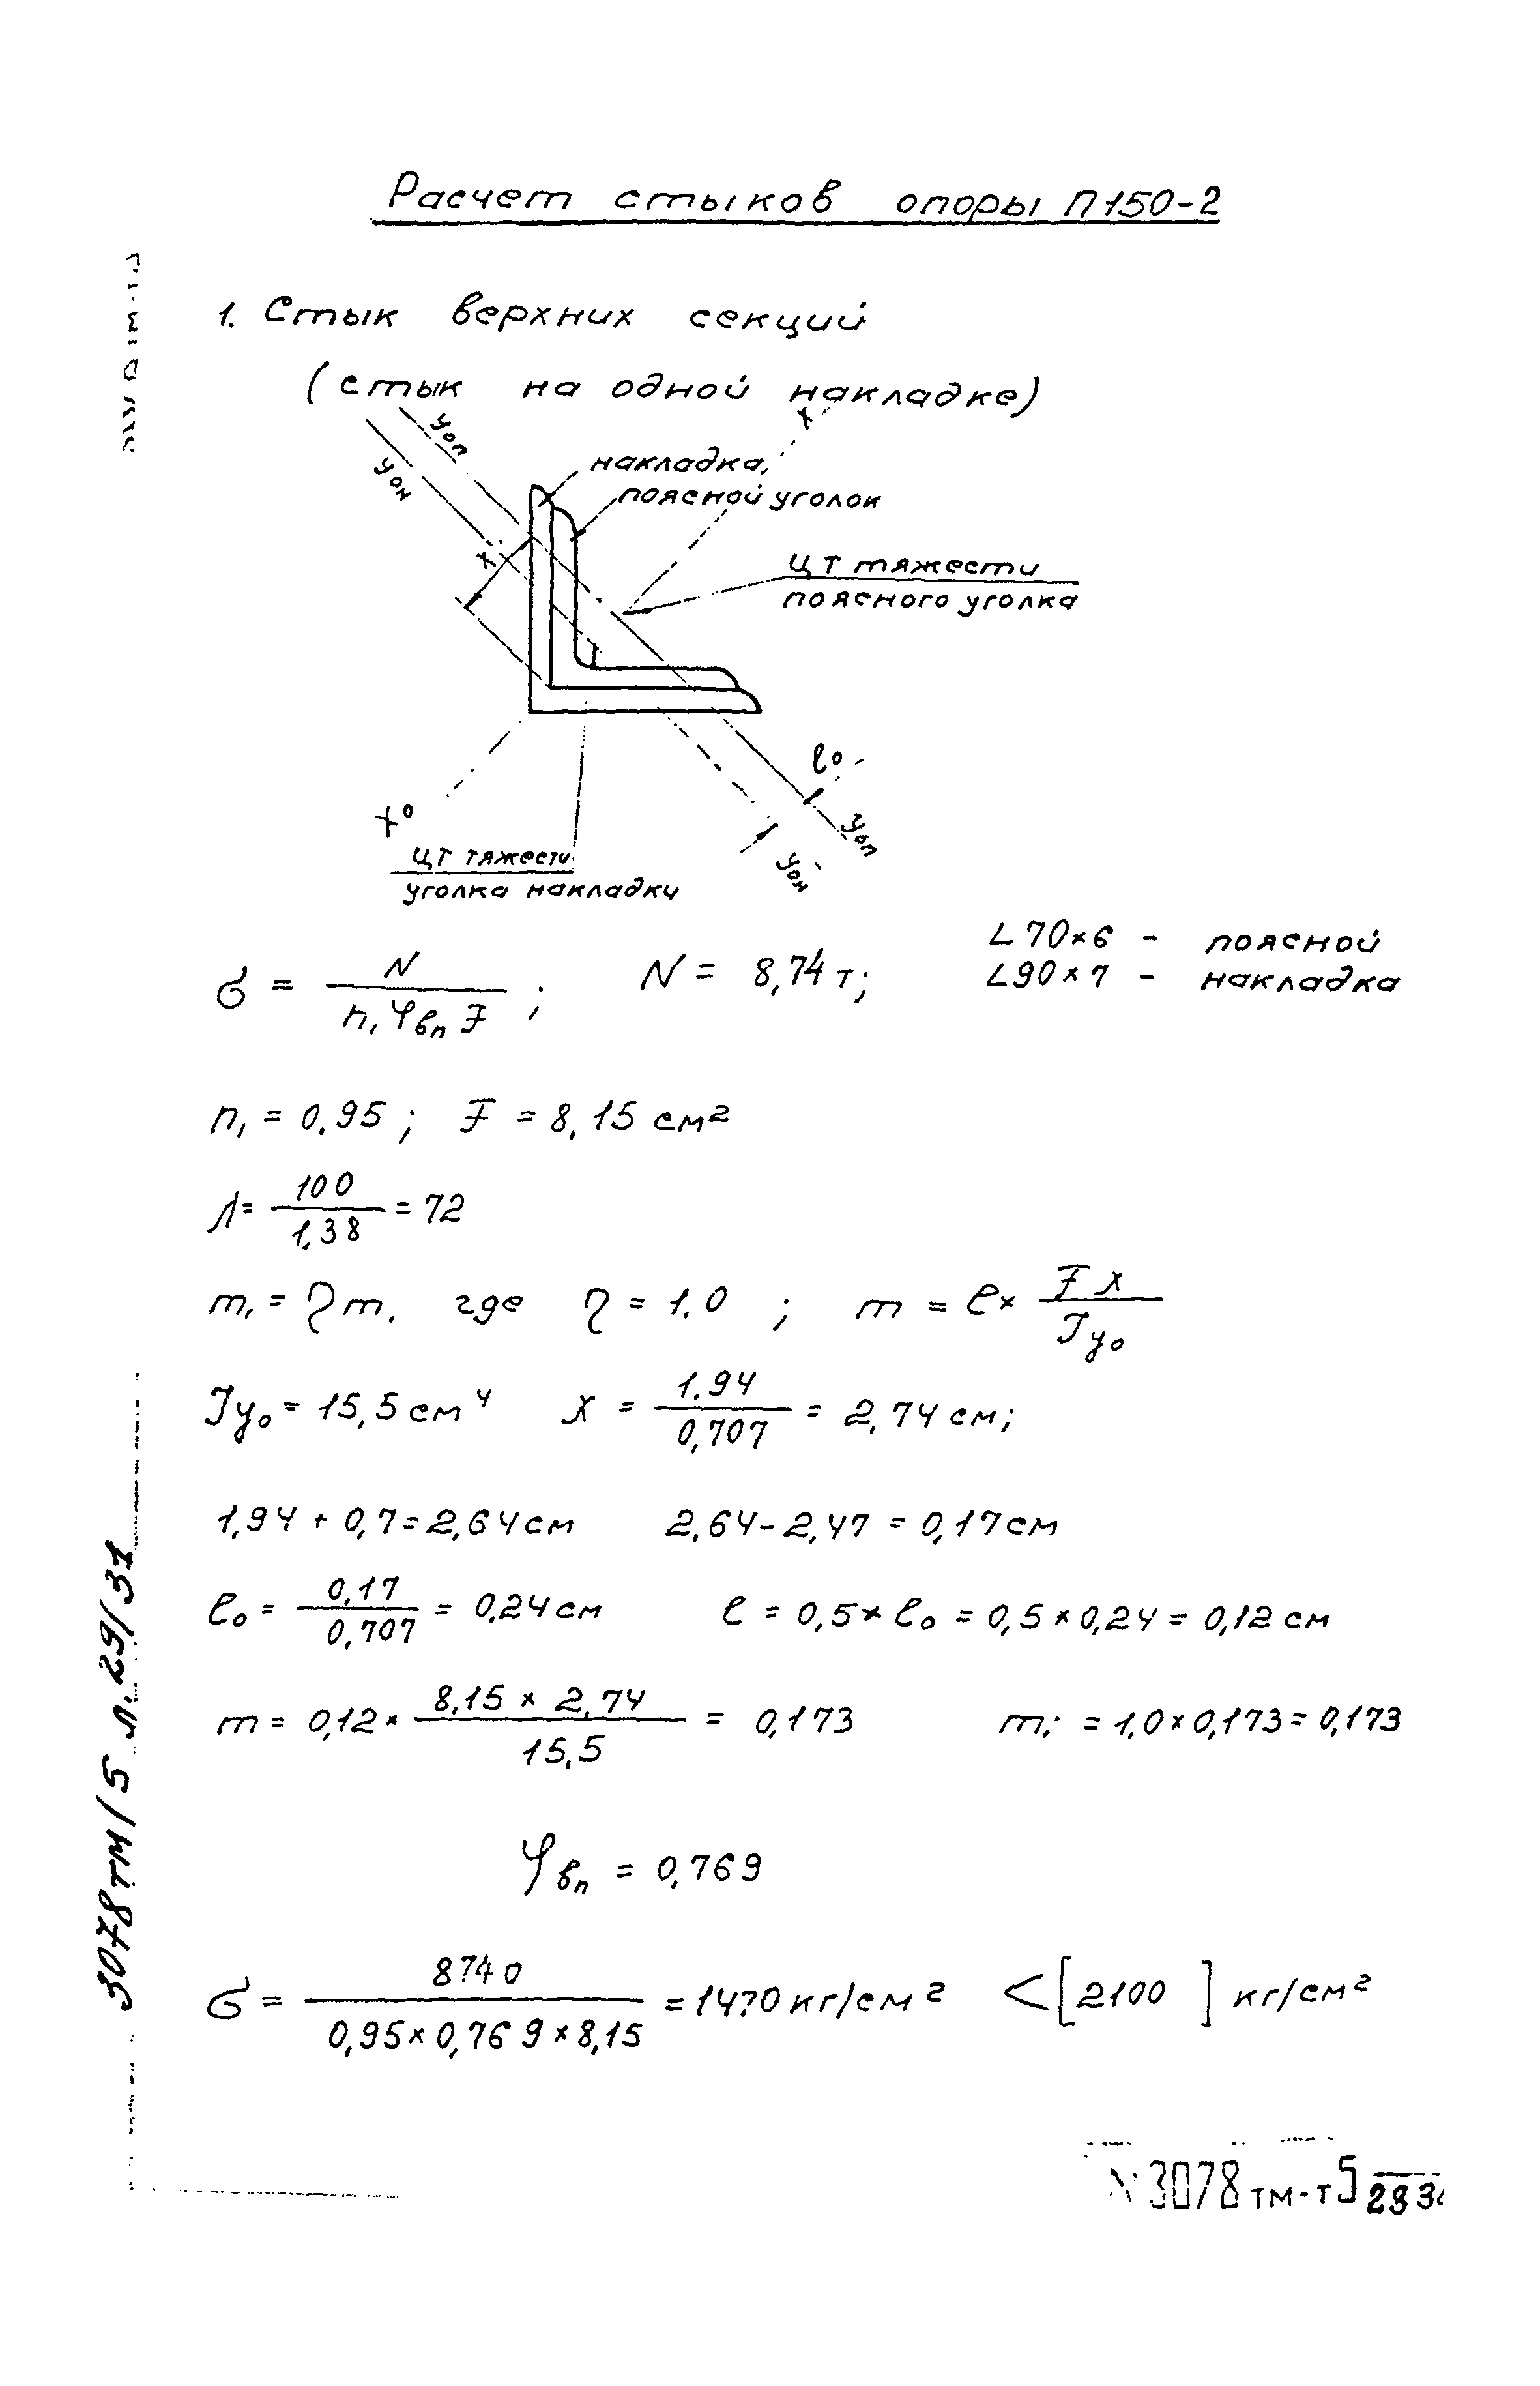 Расчет стыков опоры П150-2
1. Стык верхних секций
(стык на одной накладке)
yоп
yон
x
накладка,
поясной уголок
x
Ц Т тяжести
поясного уголка
ℓо
yоп
yон
xо
ЦТ тяжести
уголка накладки
σ = N / (n₁ φвп F) ; N = 8,74 т; L 70×6 - поясной
L90×7 - накладка
n₁ = 0,95 ; F = 8,15 см²
λ = 100 / 1,38 = 72
m₁ = η m. где η = 1.0 ; m = e × F x / Jyo
Jyo = 15,5 см⁴ x = 1.94 / 0,707 = 2,74 см;
1,94 + 0,7 = 2,64 см 2,64 - 2,47 = 0,17 см
eо = 0,17 / 0,707 = 0,24 см e = 0,5 × eо = 0,5 × 0,24 = 0,12 см
m = 0,12 × 8,15 × 2,74 / 15,5 = 0,173 m₁ = 1,0 × 0,173 = 0,173
φвп = 0,769
σ = 8740 / (0,95 × 0,769 × 8,15) = 1470 кг/см² < [2100] кг/см²
3078тм/5 л.29/31
N3078тм-т5